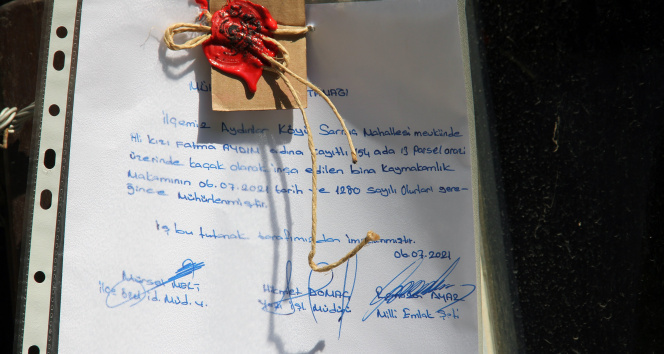 MÜ TANAĞI
İlçemiz Aydınlar Köyü Sarmaş Mahallesi mevkiinde
Ali kızı Fatma AYDIN adına kayıtlı 154 ada 13 parsel arazi
üzerinde kaçak olarak inşa edilen bina Kaymakamlık
Makamının 06.07.2021 tarih ve 1280 sayılı Olurları gere-
ğince Mühürlenmiştir.
İş bu tutanak tarafımızdan imzalanmıştır.
06.07.2021
Mürsel
Hikmet
AYAZ
İlçe Özel id. Müd. V.
Yazı İşl. Müdürü
Milli Emlak Şefi